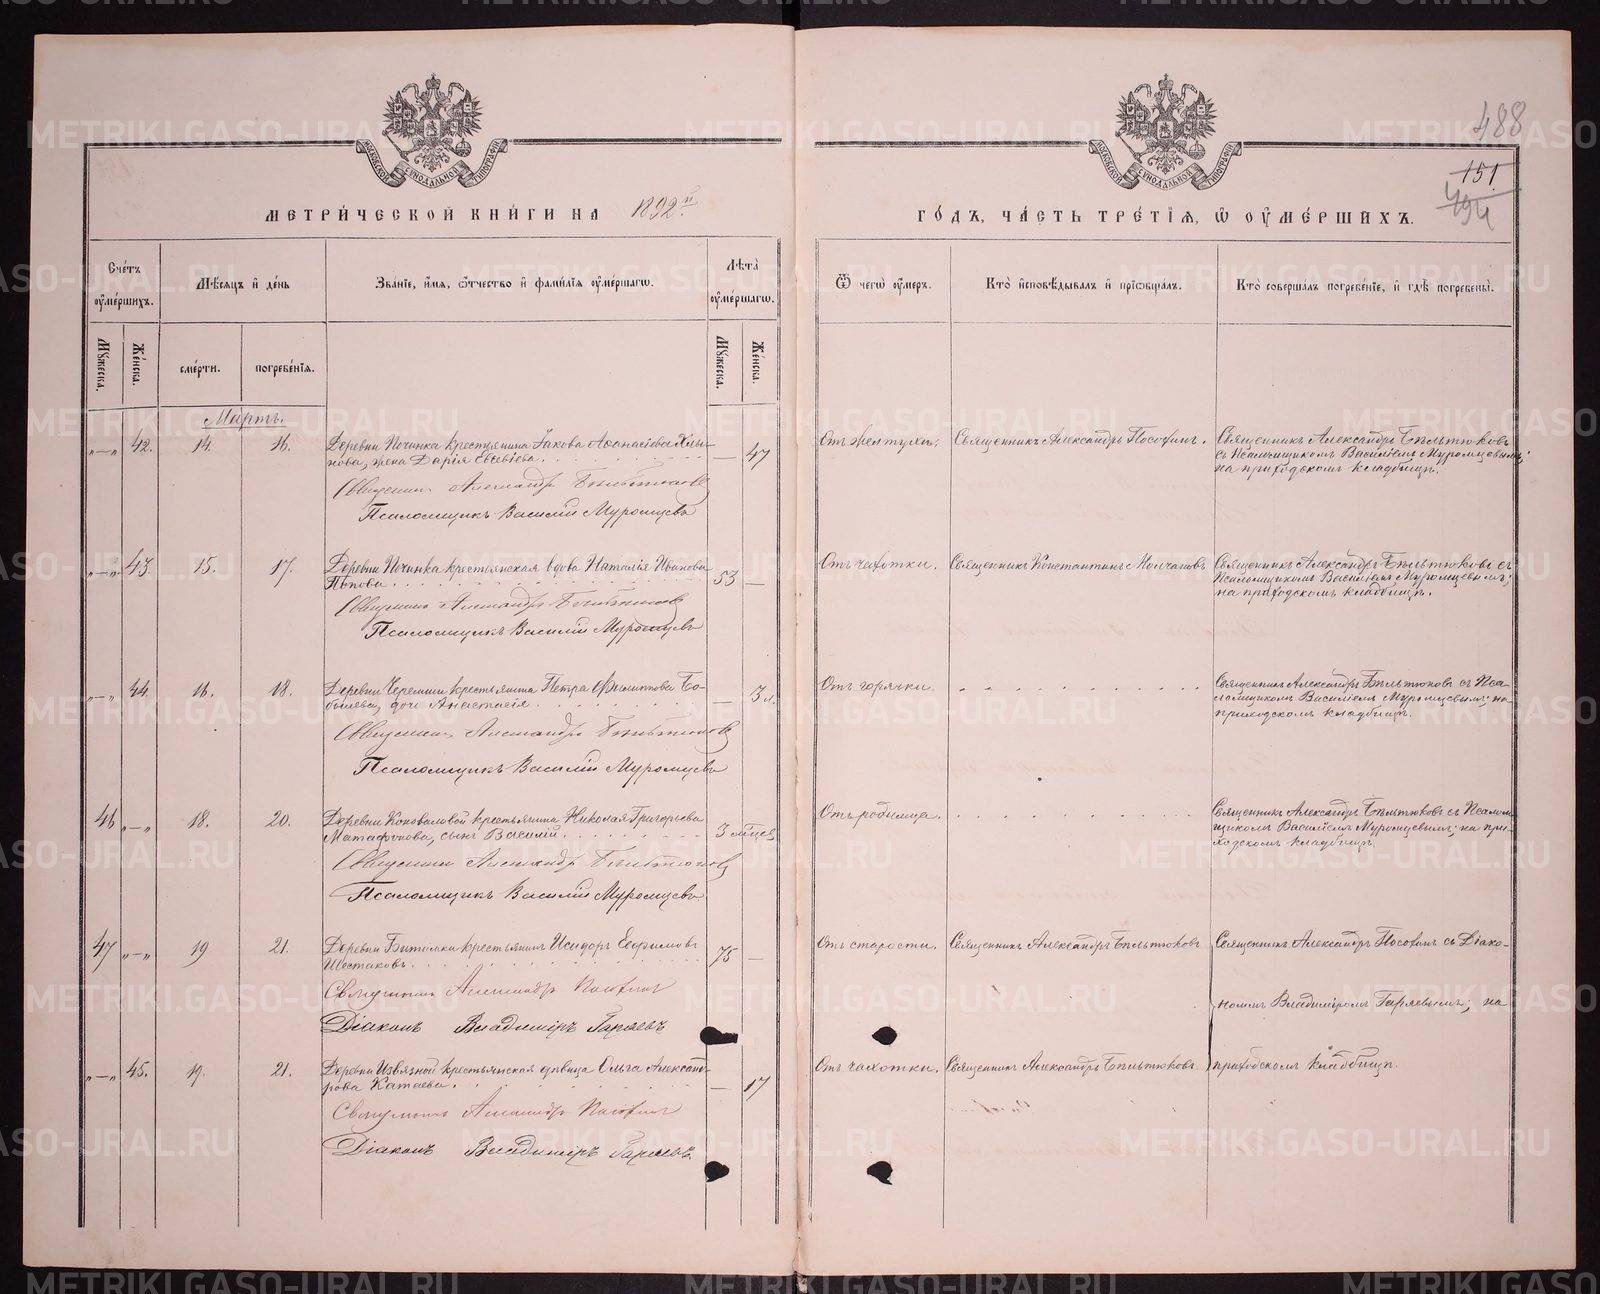 488
151
494
МОСКОВСКОЙ СѴНОДАЛЬНОЙ ТИПОГРАФІИ
МОСКОВСКОЙ СѴНОДАЛЬНОЙ ТИПОГРАФІИ
МЕТРИ́ЧЕСКОЙ КНИ́ГИ НА 1892й
ГО́ДЪ, ЧА́СТЬ ТРЕ́ТІЯ, Ѿ ОУМЕ́РШИХЪ.
Сче́тъ оумершихъ.
Мѣ́сяцъ и де́нь
Зва́ніе, и́мя, ѻ́тчество и фами́лія оуме́ршагѡ.
Лѣта̀ оуме́ршагѡ.
Ѿ чегѡ̀ оу́меръ.
Кто̀ исповѣ́дывалъ и пріѡбща́лъ.
Кто̀ соверша́лъ погребе́ніе, и гдѣ̀ погребены̀.
Му́жеска.
Же́нска.
сме́рти.
погребе́нія.
Му́жеска.
Же́нска.
Мартъ.
„—„ 42. 14. 16. Деревни Починка крестьянина Іакова Аѳанасіева Хлы-
нова, жена Дарія Евсевіева. — 47
Священникъ Александръ Бѣльтюковъ
Псаломщикъ Василій Муромцевъ
Отъ желтухи. Священникъ Александръ Посохинъ. Священникъ Александръ Бѣльтюковъ
съ Псаломщикомъ Василіемъ Муромцевымъ;
на приходскомъ кладбищѣ.
„—„ 43. 15. 17. Деревни Починка крестьянская вдова Наталія Иванова
Попова. 53 —
Священникъ Александръ Бѣльтюковъ
Псаломщикъ Василій Муромцевъ
Отъ чахотки. Священникъ Константинъ Молчановъ Священникъ Александръ Бѣльтюковъ съ
Псаломщикомъ Василіемъ Муромцевымъ;
на приходскомъ кладбищѣ.
„—„ 44. 16. 18. Деревни Черемиси крестьянина Петра Филиппова Бо-
былева, дочь Анастасія. — 3 л.
Священникъ Александръ Бѣльтюковъ
Псаломщикъ Василій Муромцевъ
Отъ горячки. Священникъ Александръ Бѣльтюковъ съ Пса-
ломщикомъ Василіемъ Муромцевымъ; на
приходскомъ кладбищѣ.
46 „—„ 18. 20. Деревни Коноваловой крестьянина Николая Григорьева
Матафонова, сынъ Василій. 3 мѣсяц.
Священникъ Александръ Бѣльтюковъ
Псаломщикъ Василій Муромцевъ
Отъ родимца. Священникъ Александръ Бѣльтюковъ съ Псалом-
щикомъ Василіемъ Муромцевымъ; на при-
ходскомъ кладбищѣ.
47 „—„ 19 21. Деревни крестьянинъ Исидоръ Ефимовъ
Шестаковъ. 75 —
Священникъ Александръ Посохинъ
Діаконъ Владиміръ Гаряевъ
Отъ старости. Священникъ Александръ Бѣльтюковъ Священникъ Александръ Посохинъ съ Діако-
номъ Владиміромъ Гаряевымъ; на
„—„ 45. 19. 21. Деревни Извязной крестьянская дѣвица Ольга Александ-
рова Катаева. — 17
Священникъ Александръ Посохинъ
Діаконъ Владиміръ Гаряевъ
Отъ чахотки. Священникъ Александръ Бѣльтюковъ приходскомъ кладбищѣ.
METRIKI.GASO-URAL.RU